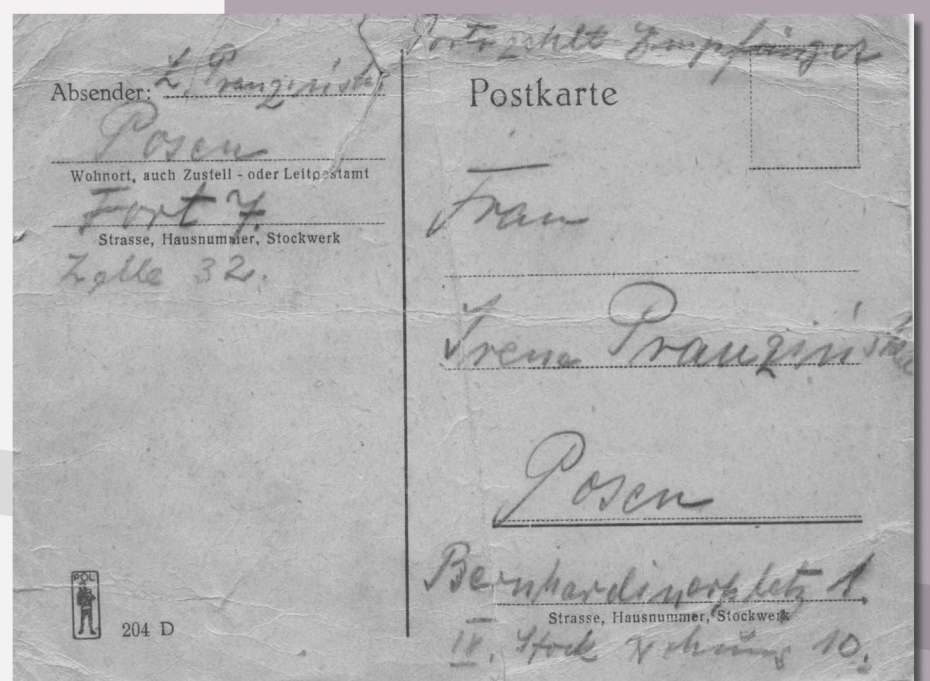 Porto zahlt Empfänger
Absender: L. Pranziński
Posen
Wohnort, auch Zustell- oder Leitpostamt
Fort 7.
Strasse, Hausnummer, Stockwerk
Zelle 32.
POL
204 D
Postkarte
Frau
Irena Pranzińska
Posen
Bernhardinerplatz 1.
Strasse, Hausnummer, Stockwerk
IV. Stock Wohnung 10.